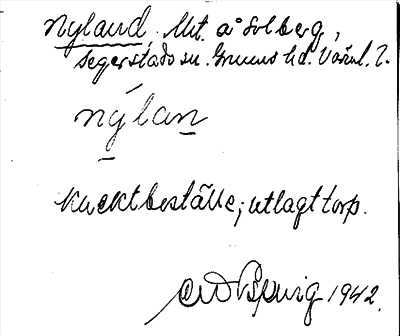 Nyland. Mt. å Solberg,
Segerstads sn. Grums hd. Värml. l.
nýlan
Knektboställe; utlagt torp.
1942.